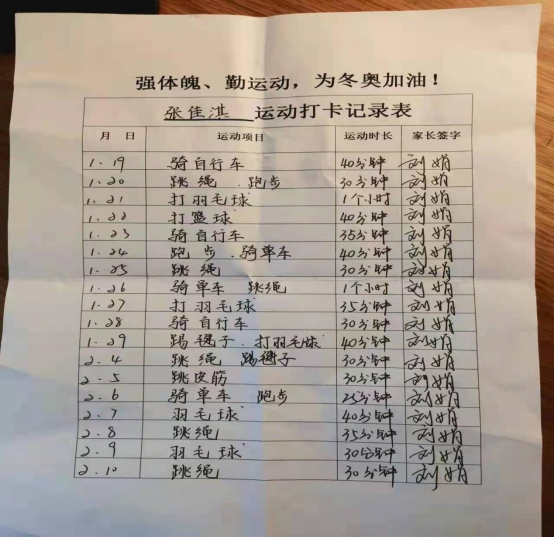 强体魄、勤运动，为冬奥加油！
张佳淇 运动打卡记录表
月 日 运动项目 运动时长 家长签字
1.19 骑自行车 40分钟 刘娟
1.20 跳绳.跑步 30分钟 刘娟
1.21 打羽毛球 1个小时 刘娟
1.22 打篮球 40分钟 刘娟
1.23 骑自行车 35分钟 刘娟
1.24 跑步.骑单车 40分钟 刘娟
1.25 跳绳 30分钟 刘娟
1.26 骑单车 跳绳 1个小时 刘娟
1.27 打羽毛球 35分钟 刘娟
1.28 骑自行车 30分钟 刘娟
1.29 踢毽子.打羽毛球 40分钟 刘娟
2.4 跳绳 踢毽子 30分钟 刘娟
2.5 跳皮筋 30分钟 刘娟
2.6 骑单车 跑步 25分钟 刘娟
2.7 羽毛球 40分钟 刘娟
2.8 跳绳 35分钟 刘娟
2.9 羽毛球 30分钟 刘娟
2.10 跳绳 30分钟 刘娟